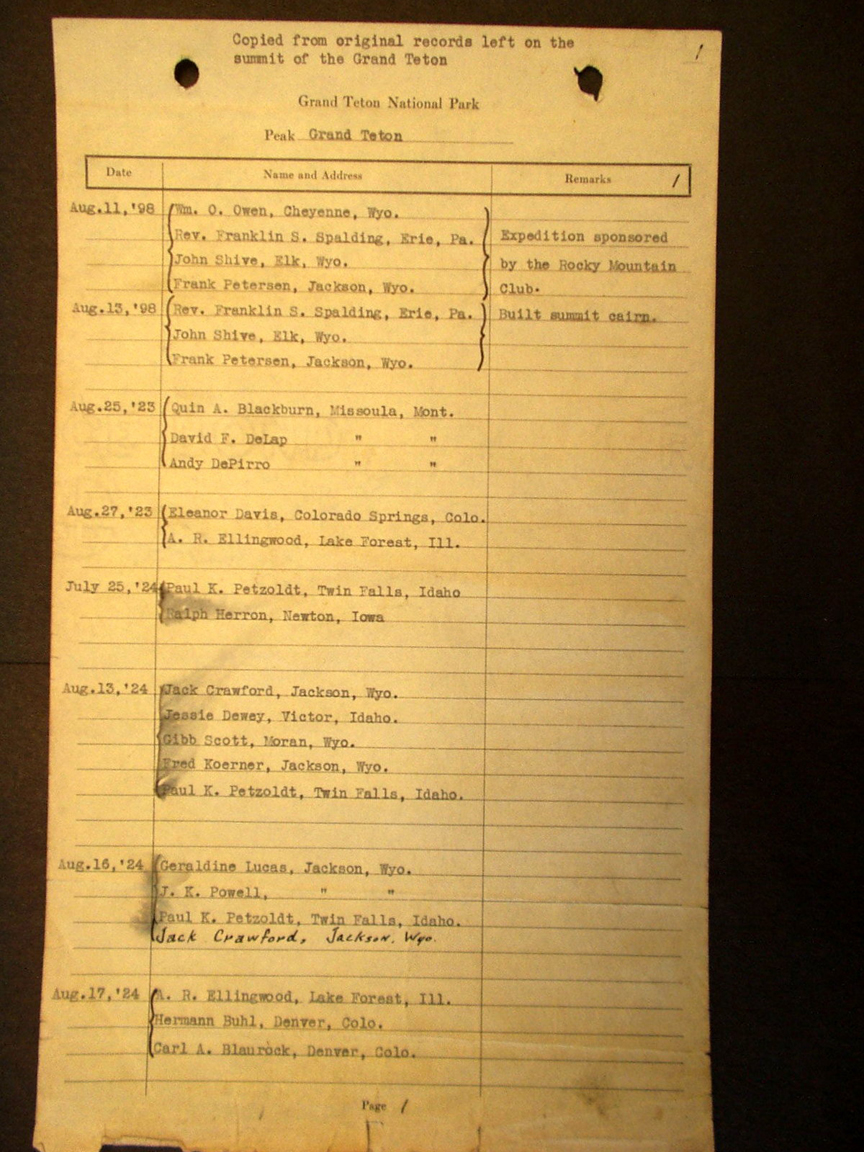 Copied from original records left on the
summit of the Grand Teton
1
Grand Teton National Park
Peak Grand Teton
Date Name and Address Remarks 1
Aug.11,'98 Wm. O. Owen, Cheyenne, Wyo.
Rev. Franklin S. Spalding, Erie, Pa. Expedition sponsored
John Shive, Elk, Wyo. by the Rocky Mountain
Frank Petersen, Jackson, Wyo. Club.
Aug.13,'98 Rev. Franklin S. Spalding, Erie, Pa. Built summit cairn.
John Shive, Elk, Wyo.
Frank Petersen, Jackson, Wyo.
Aug.25,'23 Quin A. Blackburn, Missoula, Mont.
David F. DeLap " "
Andy DePirro " "
Aug.27,'23 Eleanor Davis, Colorado Springs, Colo.
A. R. Ellingwood, Lake Forest, Ill.
July 25,'24 Paul K. Petzoldt, Twin Falls, Idaho
Ralph Herron, Newton, Iowa
Aug.13,'24 Jack Crawford, Jackson, Wyo.
Jessie Dewey, Victor, Idaho.
Gibb Scott, Moran, Wyo.
Fred Koerner, Jackson, Wyo.
Paul K. Petzoldt, Twin Falls, Idaho.
Aug.16,'24 Geraldine Lucas, Jackson, Wyo.
J. K. Powell, " "
Paul K. Petzoldt, Twin Falls, Idaho.
Jack Crawford, Jackson, Wyo.
Aug.17,'24 A. R. Ellingwood, Lake Forest, Ill.
Hermann Buhl, Denver, Colo.
Carl A. Blaurock, Denver, Colo.
Page 1